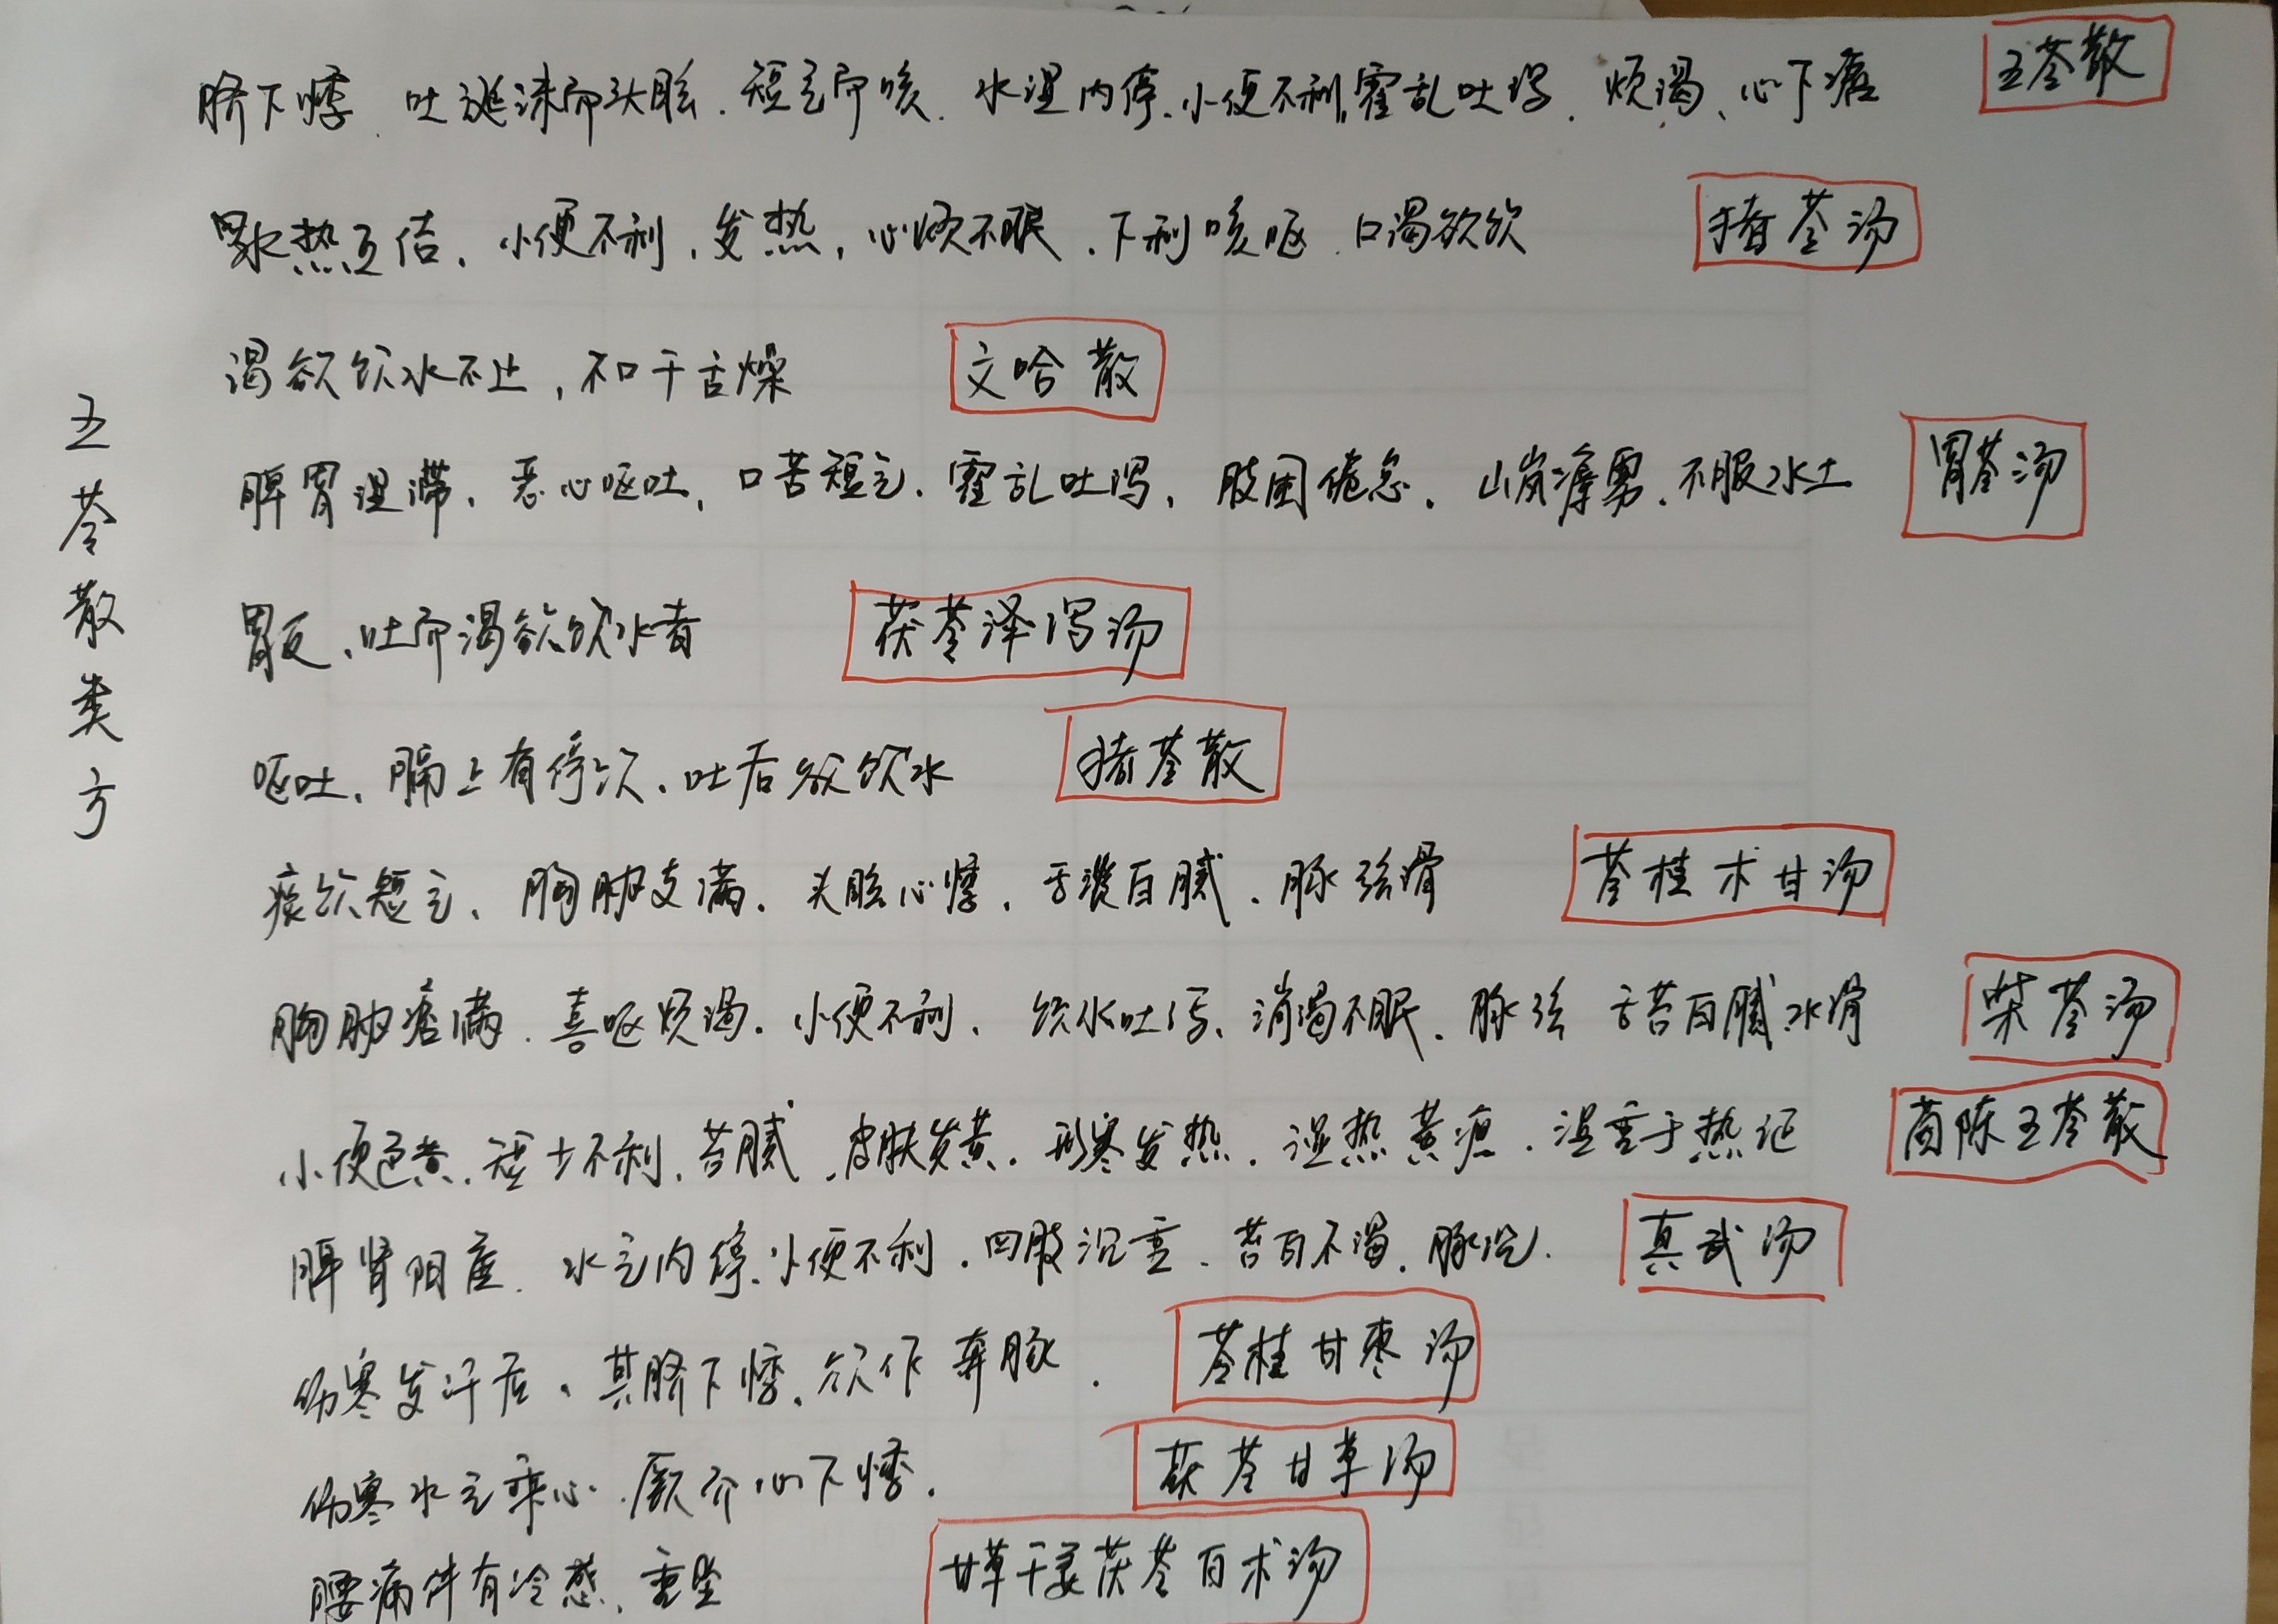 五苓散类方
脐下悸、吐涎沫而头眩、短气而咳、水湿内停、小便不利、霍乱吐泻、烦渴、心下痞 五苓散
水热互结、小便不利、发热，心烦不眠、下利咳呕、口渴欲饮 猪苓汤
渴欲饮水不止，不口干舌燥 文哈散
脾胃湿滞、恶心呕吐，口苦短气、霍乱吐泻，肢困倦怠、山岚瘴 不服水土 胃苓汤
胃反、吐而渴欲饮水者 茯苓泽泻汤
呕吐、膈上有停饮、吐后欲饮水 猪苓散
痰饮短气、胸胁支满、头眩心悸、舌淡白腻、脉弦滑 苓桂术甘汤
胸胁痞满、喜呕烦渴、小便不利、饮水吐泻、消渴不眠、脉弦 舌苔白腻水滑 柴苓汤
小便色黄、短少不利、苔腻、皮肤发黄、形寒发热、湿热黄疸、湿重于热证 茵陈五苓散
脾肾阳虚、水气内停、小便不利、四肢沉重、苔白不渴、脉沉. 真武汤
伤寒发汗后、其脐下悸、欲作奔豚. 苓桂甘枣汤
伤寒水气乘心、厥 心下悸. 茯苓甘草汤
腰痛伴有冷感、重坠 甘草干姜茯苓白术汤